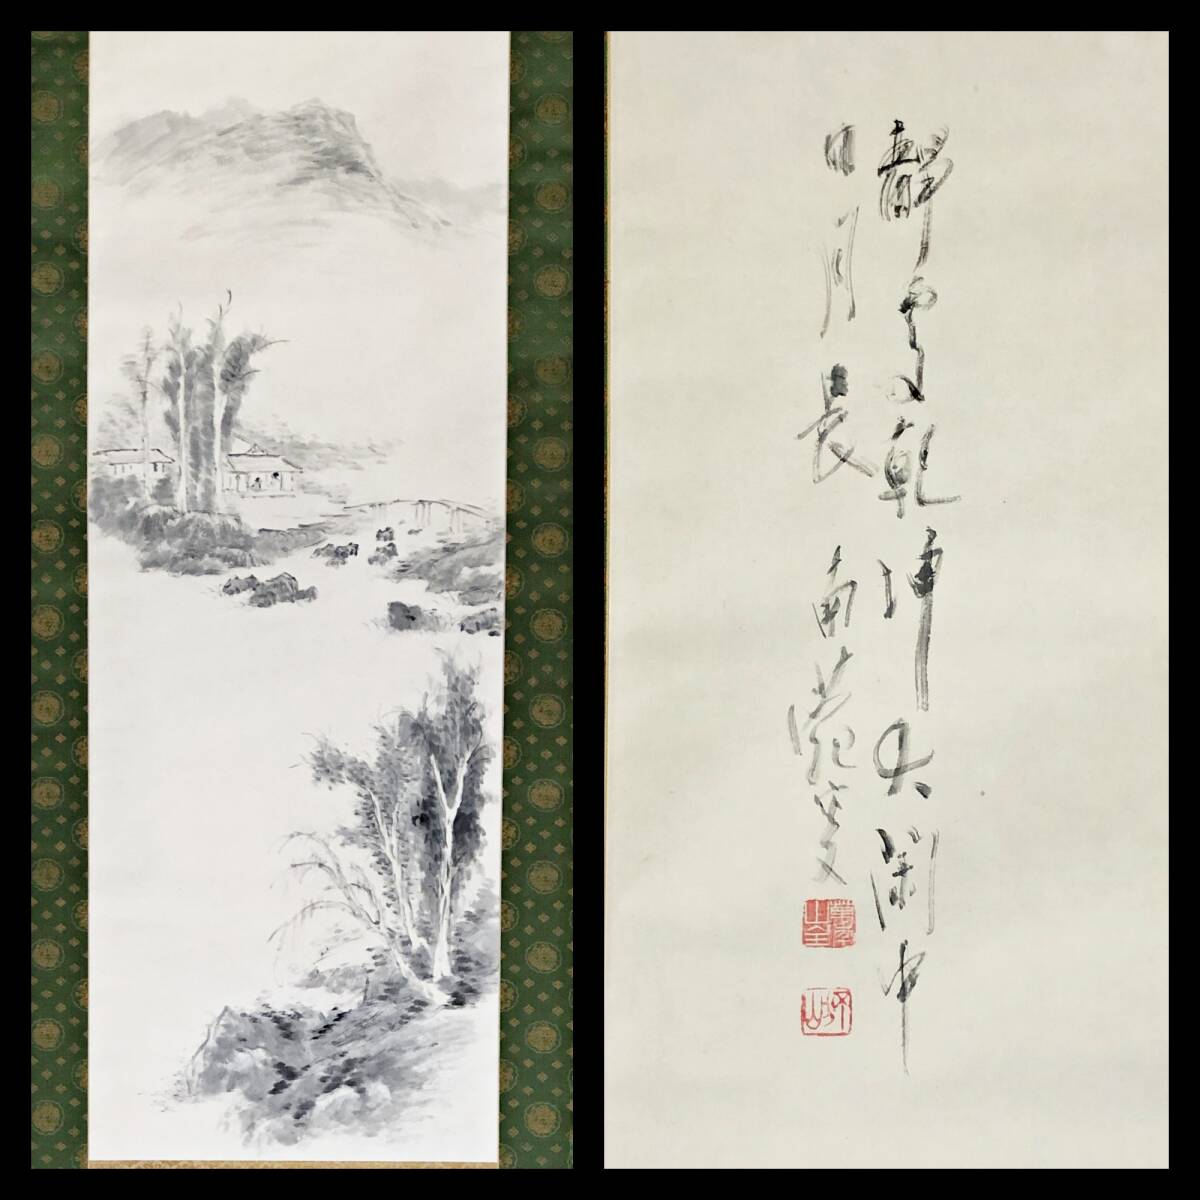 靜裏乾坤大閑中
日月長 南苑